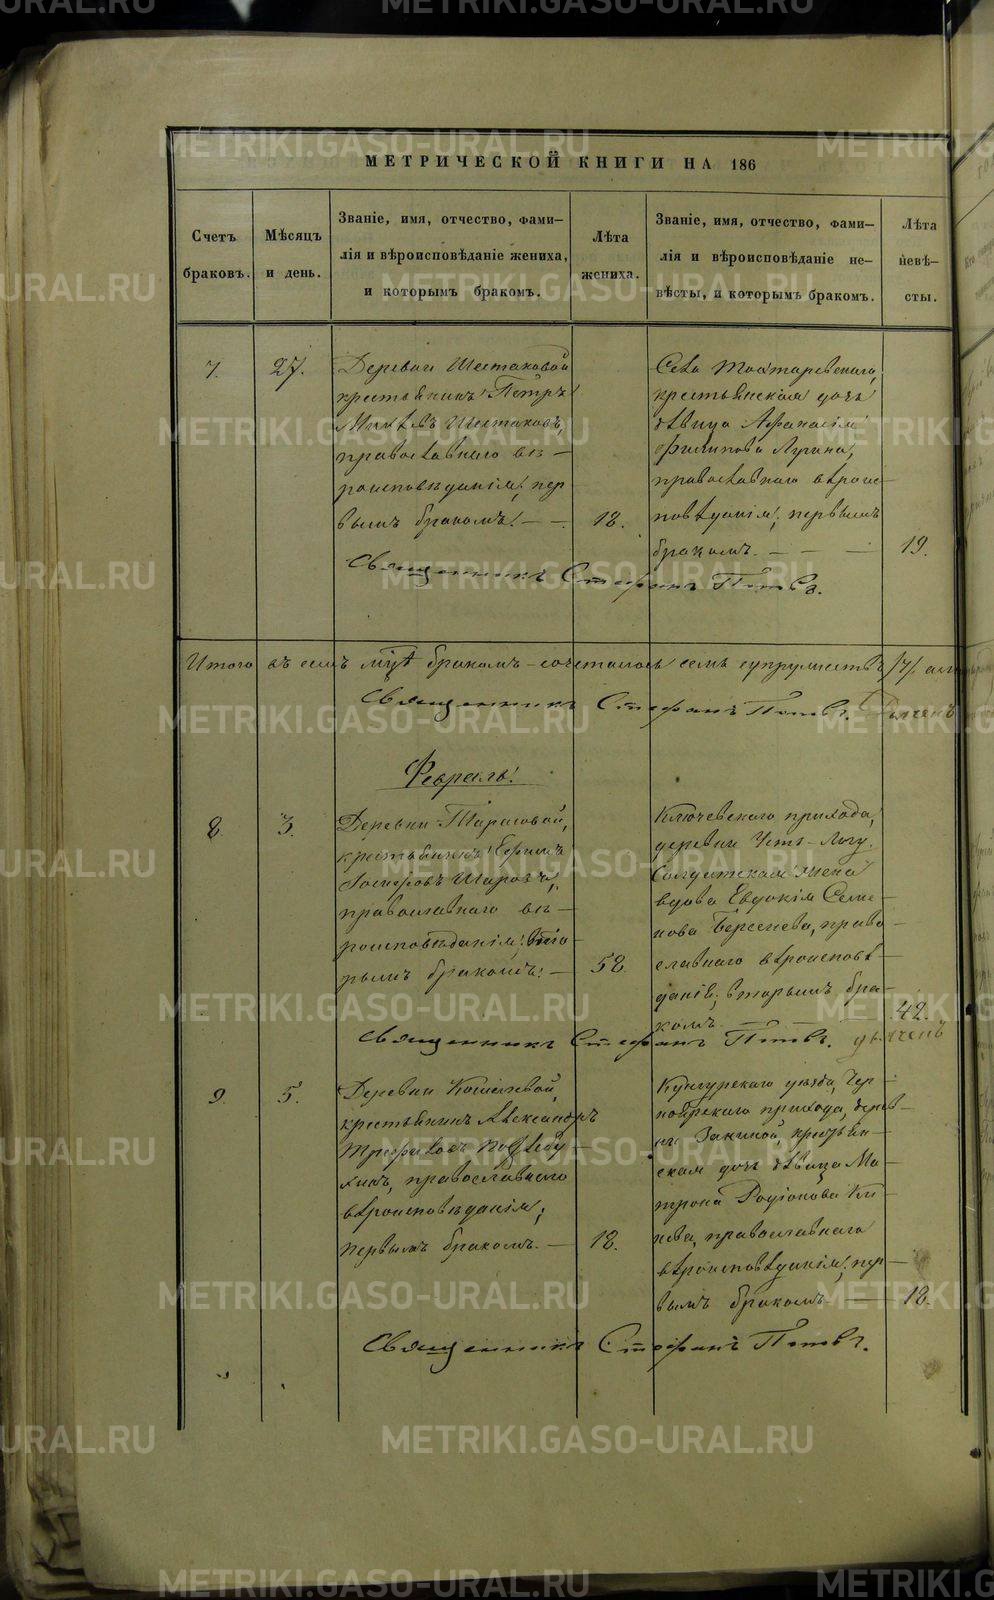 МЕТРИЧЕСКОЙ КНИГИ НА 186
Счетъ браковъ.
Мѣсяцъ и день.
Званіе, имя, отчество, фами-
лія и вѣроисповѣданіе жениха,
и которымъ бракомъ.
Лѣта жениха.
Званіе, имя, отчество, фами-
лія и вѣроисповѣданіе не-
вѣсты, и которымъ бракомъ.
Лѣта невѣ-
сты.
7.
27.
Деревни Шестаковой
крестьянинъ Петръ
Шестаковъ,
православнаго вѣ-
роисповѣданія, пер
вымъ бракомъ. —
18.
Села
крестьянская дочь
дѣвица Афанасія
Филипова Лузина,
православнаго вѣроис-
повѣданія, первымъ
бракомъ. — — —
19.
Священникъ Стефанъ Поповъ.
Итого въ семъ бракомъ сочеталось семь супружествъ /7/
Священникъ Стефанъ Поповъ.
Февраль.
8.
3.
Деревни Тарасовой,
крестьянинъ Ефимъ
Іосифовъ Шаровъ,
православнаго вѣ-
роисповѣданія, вто
рымъ бракомъ. —
58.
Ключевскаго прихода,
деревни Усть-Логу.
Солдатская жена
вдова Евдокія Семе-
нова Берсенева, право
славнаго вѣроисповѣ-
данія, вторымъ бра-
комъ. — — —
42.
Священникъ Стефанъ Поповъ.
9.
5.
Деревни Кошелевой,
крестьянинъ Александръ
Трифиловъ
православнаго
вѣроисповѣданія,
первымъ бракомъ. —
18.
Кунгурскаго уѣзда,
прихода, дерев-
ни крестьян-
ская дочь дѣвица Ма-
трона Родіонова
православнаго
вѣроисповѣданія, пер-
вымъ бракомъ —
18.
Священникъ Стефанъ Поповъ.
METRIKI.GASO-URAL.RU